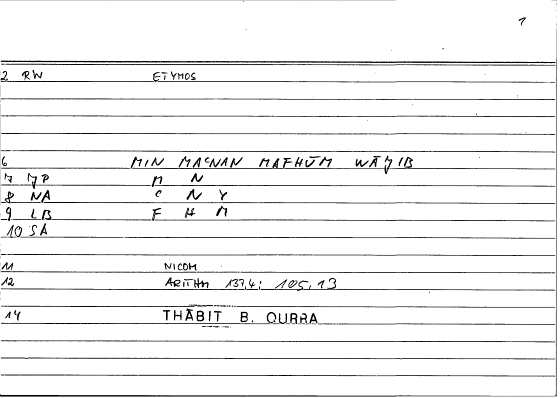 1
2 RW ETYMOS
6 MIN MAʿNAN MAFHŪM WĀǦIB
7 M N
8 NA ʿ N Y
9 LB F H M
10 SA
11 NICOM
12 ARITHM 137,4; 105,13
14 THĀBIT B. QURRA